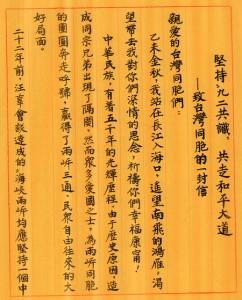 堅持“九二共識”，共走和平大道
——致台灣同胞的一封信
親愛的台灣同胞們：
乙未金秋，我站在長江入海口，遥望南飛的鴻雁，渴
望帶去我對你們深情的思念，祈禱你們幸福康甯！
中華民族，有着五千年的光輝歷程，由于歷史原因，造
成同宗兄弟出現了隔閡，然而衆多愛國之士，為兩岍同胞
的團圓奔走呼號，赢得了兩岍三通、民衆自由往來的大
好局面。
二十二年前，汪辜會談達成的，海峽兩岍均應堅持一個中